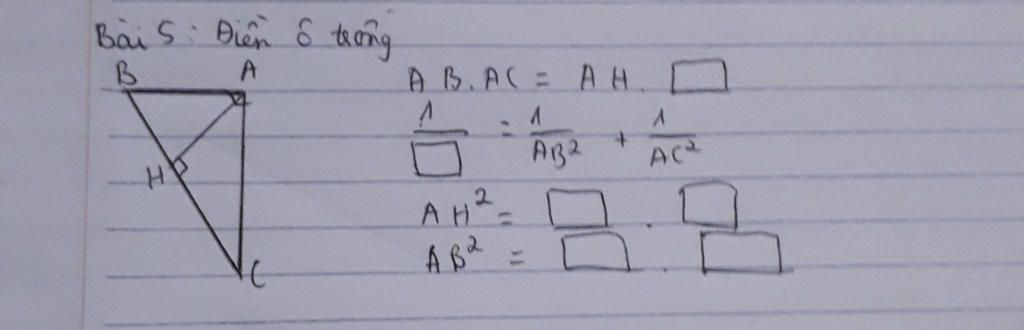 Bài 5: Điền ô trống
B A
AB.AC = AH. □
1/□ = 1/AB² + 1/AC²
H
AH² = □ . □
AB² = □ . □
C